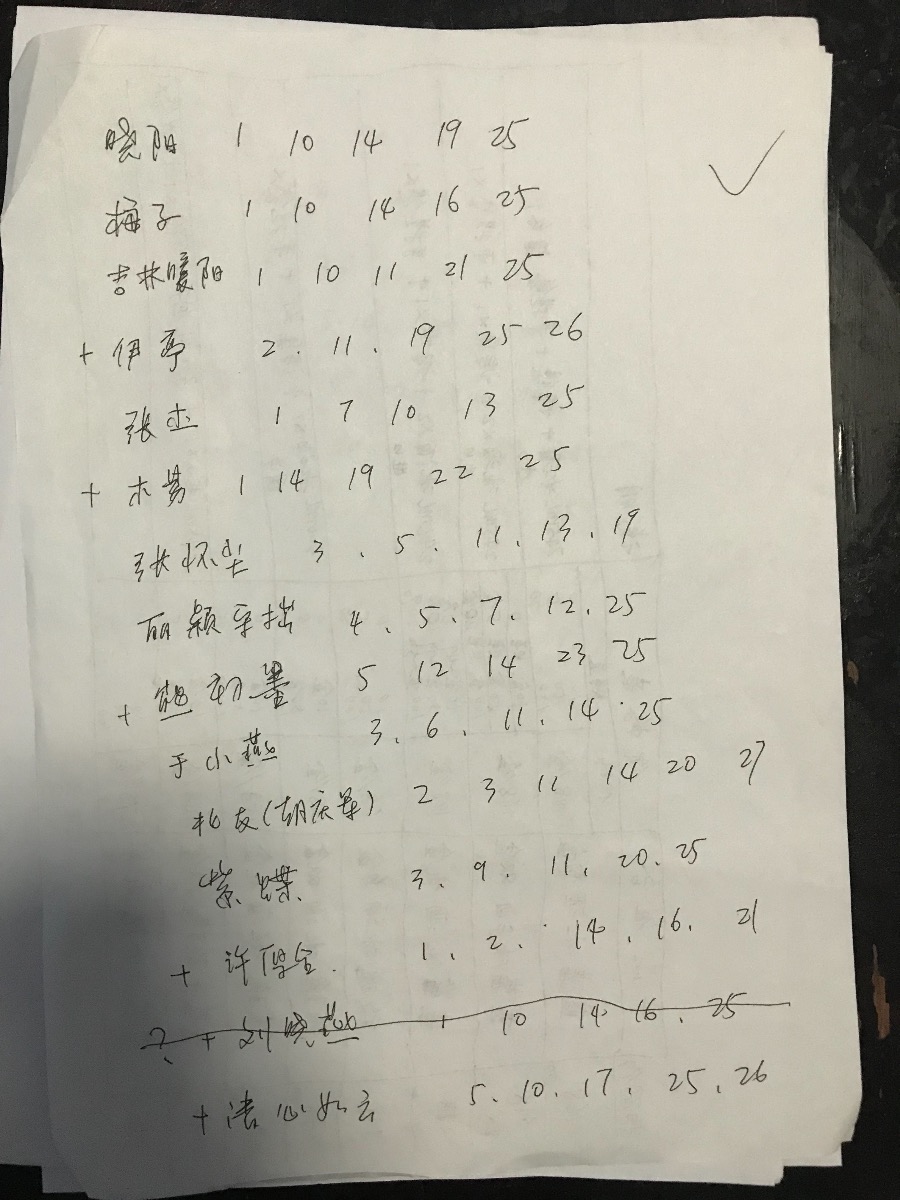 晓阳 1 10 14 19 25
梅子 1 10 14 16 25
吉林暖阳 1 10 11 21 25
+ 伊亭 2 . 11 . 19 25 26
张杰 1 7 10 13 25
+ 木易 1 14 19 22 25
张怀 3 . 5 . 11 . 13 . 19
丽颖手拙 4 . 5 . 7 . 12 . 25
+ 初墨 5 12 14 23 25
于小燕 3 . 6 . 11 . 14 . 25
札友(胡庆军) 2 3 11 14 20 27
紫蝶 3 . 9 . 11 . 20 . 25
+ 许厚全 . 1 . 2 . 14 . 16 . 21
? + 刘晓燕 1 10 14 16 . 25
+ 洁心如云 5 . 10 . 17 . 25 . 26